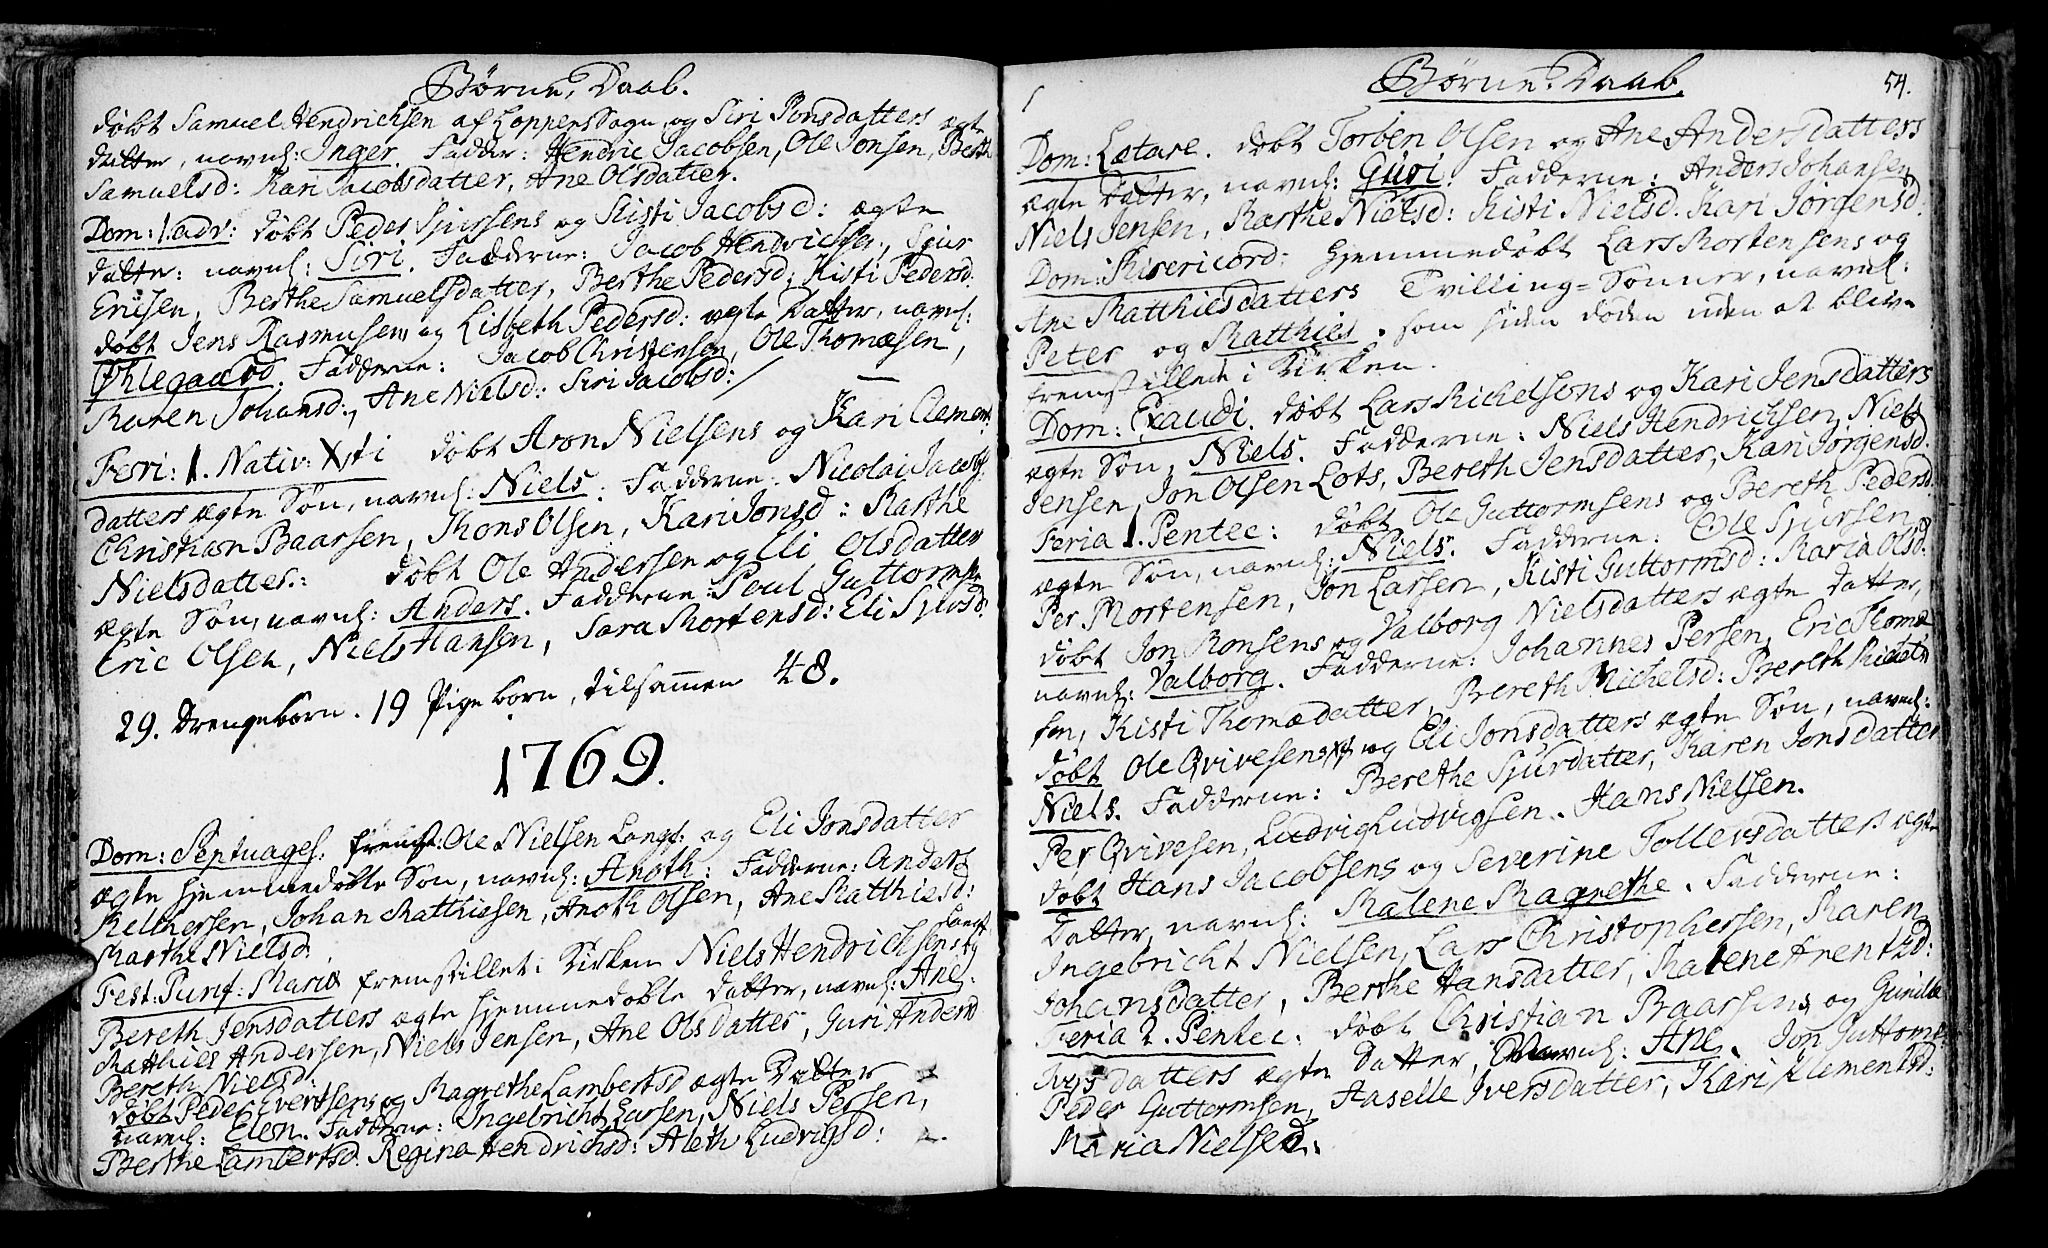 Børne-Daab.
døbt Samuel Hendrichsen af Loppens Sogn og Siri Jonsdatters ægte
datter, navnl: Inger. Fadder: Hendric Jacobsen, Ole Jonsen, Berth
Samuelsd: Kari Jacobsdatter, Ane Olsdatter.
Dom: 1. adv: døbt Peder Sjursens og Kisti Jacobsd: ægte
datter: navnl: Siri. Fadderne: Jacob Hendrichsen, Sjur
Ericsen, Berthe Samuelsdatter, Berthe Pedersd: Kisti Pedersd.
døbt Jens Rasmusens og Lisbeth Pedersd: ægte Datter, navnl:
Øhlegaard. Fadderne: Jacob Christensen, Ole Thomæsen,
Maren Johansd:, Ane Nielsd: Siri Jacobsd:
Feri: 1. Nativ: Xsti døbt Aron Nielsens og Kari Clements
datters ægte Søn, navnl: Niels. Fadderne: Nicolai Jacobs:
Christian Baarsen, Mons Olsen, Kari Jonsd: Marthe
Nielsdatter: døbt Ole Andersen og Eli Olsdatter
ægte Søn, navnl: Anders. Fadderne: Poul Guttormsen
Eric Olsen, Niels Hansen, Sara Mortensd: Eli Sjursd:
29. Drengebørn. 19 Pigebørn, tilsammen 48.
1769.
Dom: Septuages: fremst: Ole Nielsen Langf: og Eli Jonsdatter
ægte hjemmedøbte Søn, navnl: Anoth: Fadderne: Anders
Melchersen, Johan Matthiesen, Anoth Olsen, Ane Matthiesd:
Marthe Nielsd.
Fest: Purif: Mariæ fremstillet i Kirken Niels Hendrichsens Langf. og
Bereth Jensdatters ægte hjemmedøbte datter, navnl: Ane.
Matthies Andersen, Niels Jensen, Ane Olsdatter, Guri Andersd
Bereth Nielsd:
døbt Peder Evertsens og Magrethe Lambertsd ægte Datter
navnl: Elen. Fadderne: Ingebricht Larsen, Niels Persen,
Berthe Lambertsd. Regina Hendrichsd: Aleth Ludvigsd:
Børne-Daab. 54.
Dom: Lætare. døbt Torben Olsen og Ane Andersdatters
ægte Datter, navnl: Guri. Fadderne: Anders Johansen,
Niels Jensen, Marthe Nielsd: Kisti Nielsd. Kari Jørgensd.
Dom: Misericord: hjemmedøbt Lars Mortensens og
Ane Matthiesdatters Tvilling-Sønner, navnl:
Peter og Matthies. som siden døde uden at blive
fremstillet i Kirken.
Dom: Exaudi. døbt Lars Michelsøns og Kari Jensdatters
ægte Søn, Niels. Fadderne: Niels Hendrichsen, Niels
Jensen, Jon Olsen Lots, Bereth Jensdatter, Kari Jørgensd.
Feria 1. Pentec: døbt Ole Guttormsens og Bereth Pedersd
ægte Søn, navnl: Niels. Fadderne: Ole Sjursen,
Per Mortensen, Jon Larsen, Kisti Guttormsd: Maria Olsd:
døbt Jon Monsens og Valborg Nielsdatters ægte datter,
navnl: Valborg. Fadderne: Johannes Persen, Eric Thomæ
sen, Kisti Thomædatter, Bereth Michelsd: Bereth Michelsd
døbt Ole Qvivesens og Eli Jonsdatters ægte Søn, navnl:
Niels. Fadderne: Berethe Sjurdatter, Karen Jonsdatter
Per Qvivesen, Ludvig Ludvigsen. Hans Nielsen.
døbt Hans Jacobsens og Severine Tollevsdatters ægte
Datter, navnl: Malene Magrethe. Fadderne:
Ingebricht Nielsen, Lars Christophersen, Maren
Johansdatter, Berthe Hansdatter, Malene Arentzd:
Feria 2. Pentec: døbt Christian Baarsens og Gunilde
Iversdatters ægte Datter, navnl: Ane. Jon Guttorms:
Peder Guttormsen, Aaselle Iversdatter, Kari Klementsd:
Maria Nielsed.